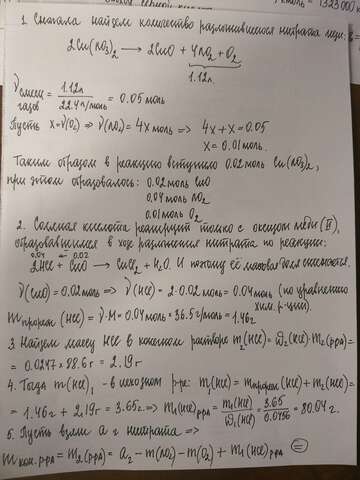 1. Сначала найдём количество разложившегося нитрата меди:
2Cu(NO₃)₂ ⟶ 2CuO + 4NO₂ + O₂
1.12л
νсмеси газов = 1.12л / 22.4л/моль = 0.05 моль
Пусть x=ν(O₂) ⇒ ν(NO₂) = 4x моль ⇒ 4x+x=0.05
x=0.01 моль.
Таким образом в реакцию вступило 0.02 моль Cu(NO₃)₂,
при этом образовалось: 0.02 моль CuO
0.04 моль NO₂
0.01 моль O₂
2. Соляная кислота реагирует только с оксидом меди (II),
образовавшимся в ходе разложения нитрата по реакции:
0.04 ← 0.02
2HCl + CuO ⟶ CuCl₂ + H₂O. И поэтому её массовая доля снижается.
ν(CuO)=0.02 моль ⇒ ν(HCl) = 2·0.02 моль = 0.04 моль (по уравнению
хим. р-ции).
mпрореаг (HCl) = ν·M = 0.04 моль · 36.5 г/моль = 1.46г
3. Найдём массу HCl в конечном растворе m₂(HCl) = ω₂(HCl)·m₂(р-ра) =
= 0.0247 × 88.6 г = 2.19 г
4. Тогда m(HCl)₁ - в исходном р-ре: m₁(HCl) = mпрореаг(HCl) + m₂(HCl) =
= 1.46г + 2.19г = 3.65г. ⇒ m₁(HCl)р-ра = m₁(HCl) / ω₁(HCl) = 3.65 / 0.0456 = 80.04 г.
5. Пусть взяли a г нитрата ⇒
mкон. р-ра = m₂(р-ра) = aг - m(NO₂) - m(O₂) + m₁(HCl)р-ра =